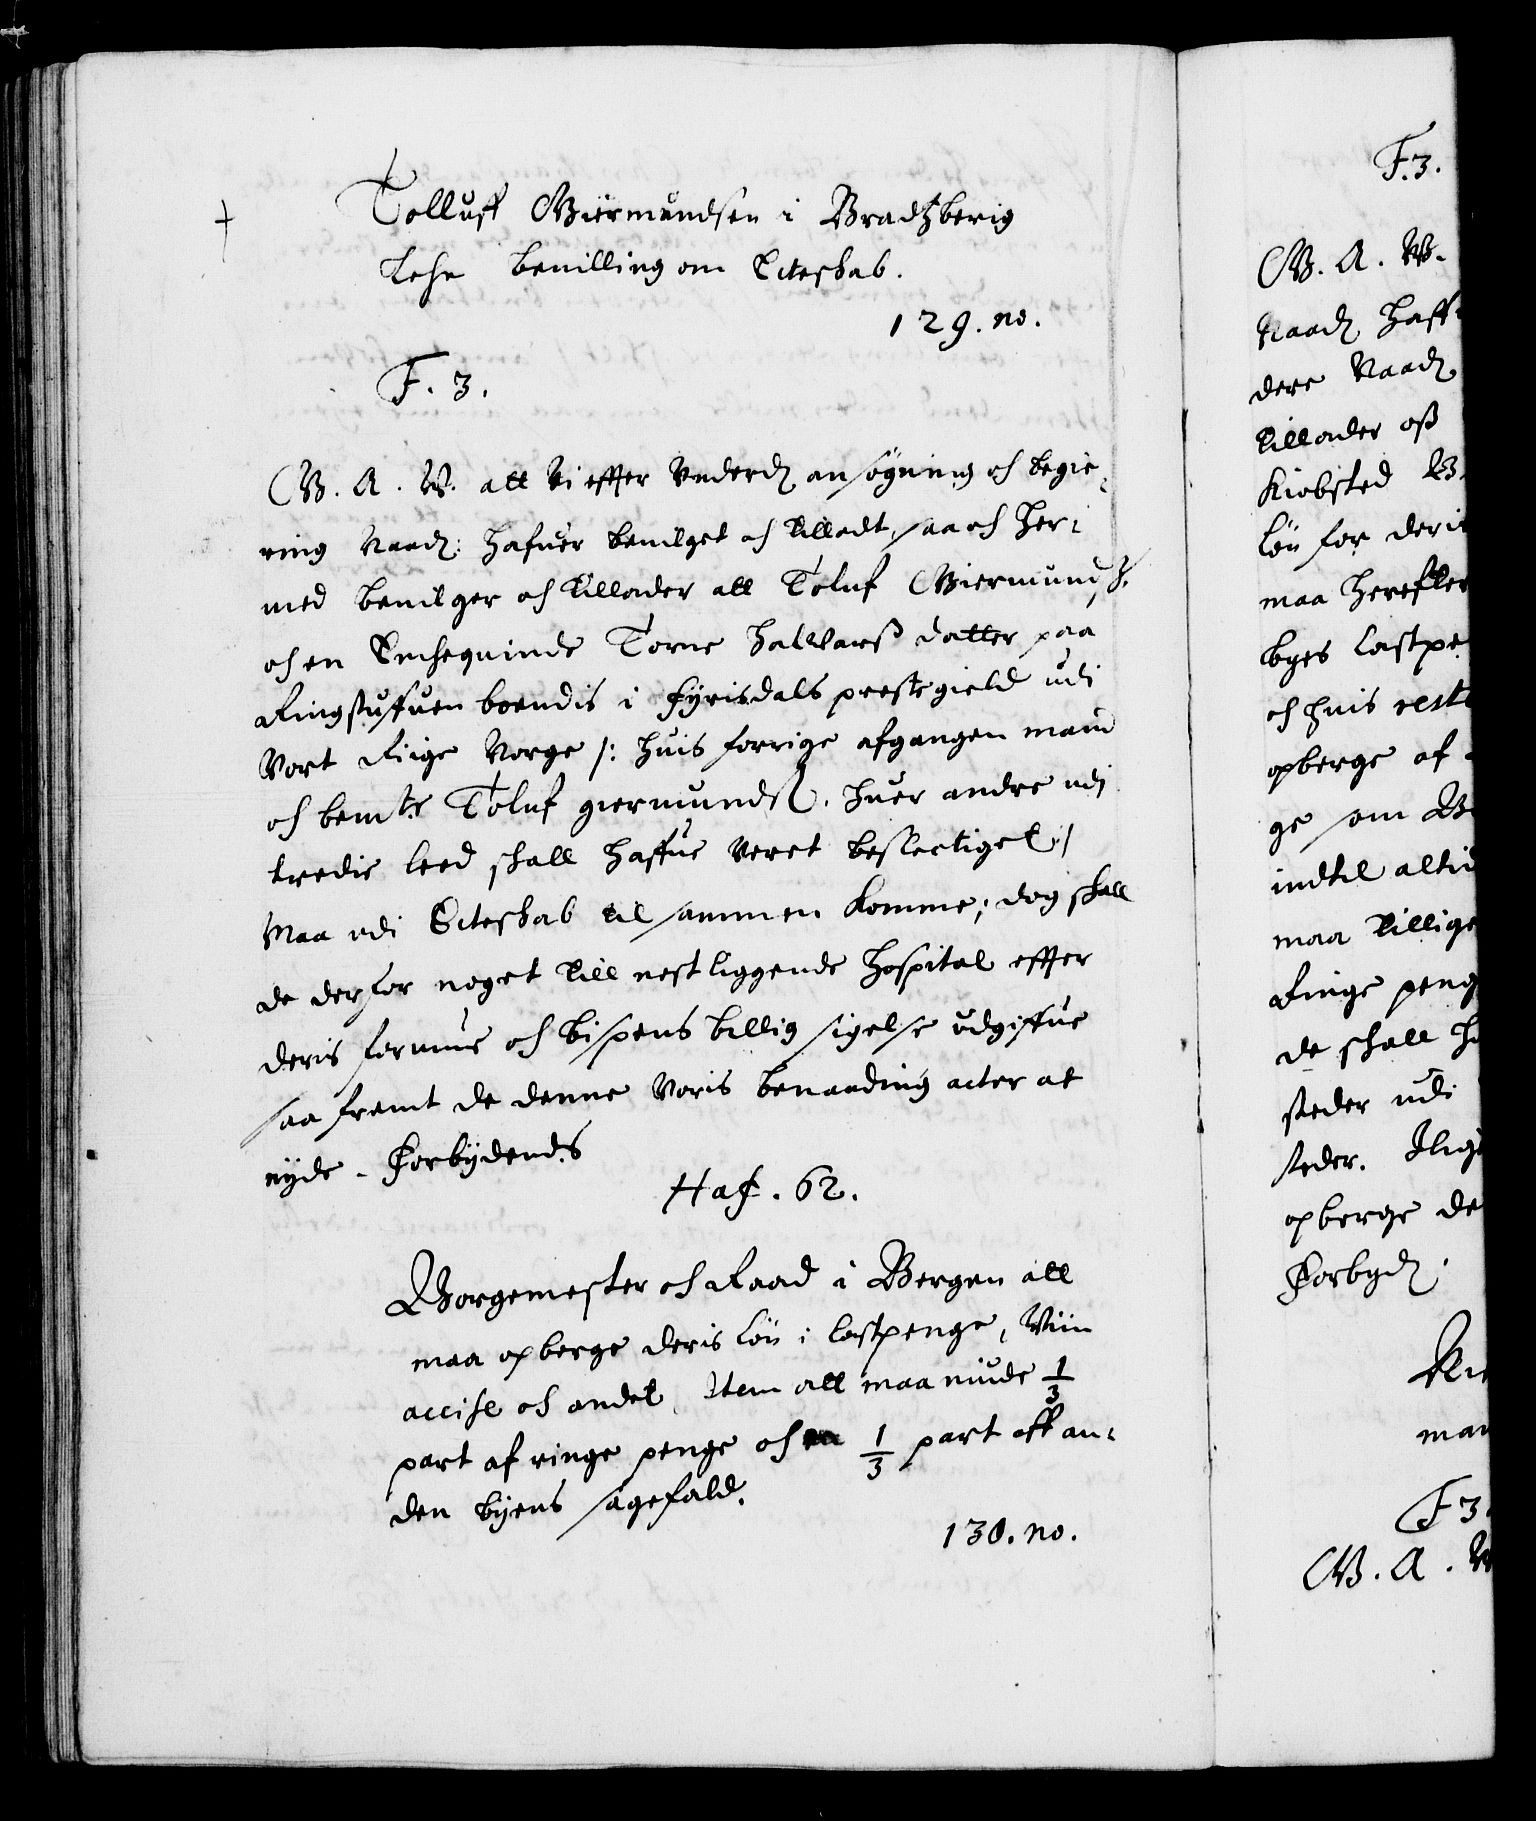 Tolluff Giermundsen i Bradtzberig
Lehn bevilling om Ecteskab.
129. no.
F. 3.
G. A. W. att Vi effter Underd ansögning och begie¬
ring Naad: hafuer bevilget och Tilladt, saa och her¬
med bevilger och Tillader att Toluf Giermundß.
och en Enchequinde Torne Halvarß datter paa
Ringstufuen boendis i Fyrisdals prestegield udi
Vort Riige Norge /: huis forrige afgangen mand
och bemte Toluf giermundß. huer andre udi
tredie leed skall haffue veret beslectiget :/
Maa udi Ecteskab til sammen komme; dog skall
de derfor noget till nest liggende Hospital effter
deris formue och bispens billig sigelse udgiffue
saa fremt de denne Voris benaading acter at
nyde - Forbydendes
Haf. 62.
Borgemester och Raad i Bergen att
maa opberge deris Lön i lastpenge, Viin
accise och andet, Item att maa niude 1/3
part af ringe penge och 1/3 part aff an¬
den byens sagefald.
130. no.
F. 3.
G. A. W.
Naad haff
dere Naad
tillader oß
Kiobsted B.
Lön for deris
maa herefter
byes lastpe
och huis reste
opberge af
ge som B
indtil altid
maa tillige
Ringe peng
de skall h
steder udi
steder. Ilige
opberge de
Forbyd
man
F 3.
G. A. W